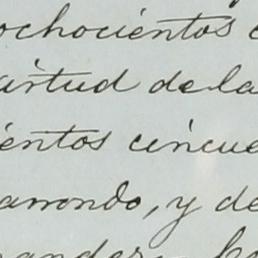 ochocientos
virtud de la
ientos cincue
arrondo, y de